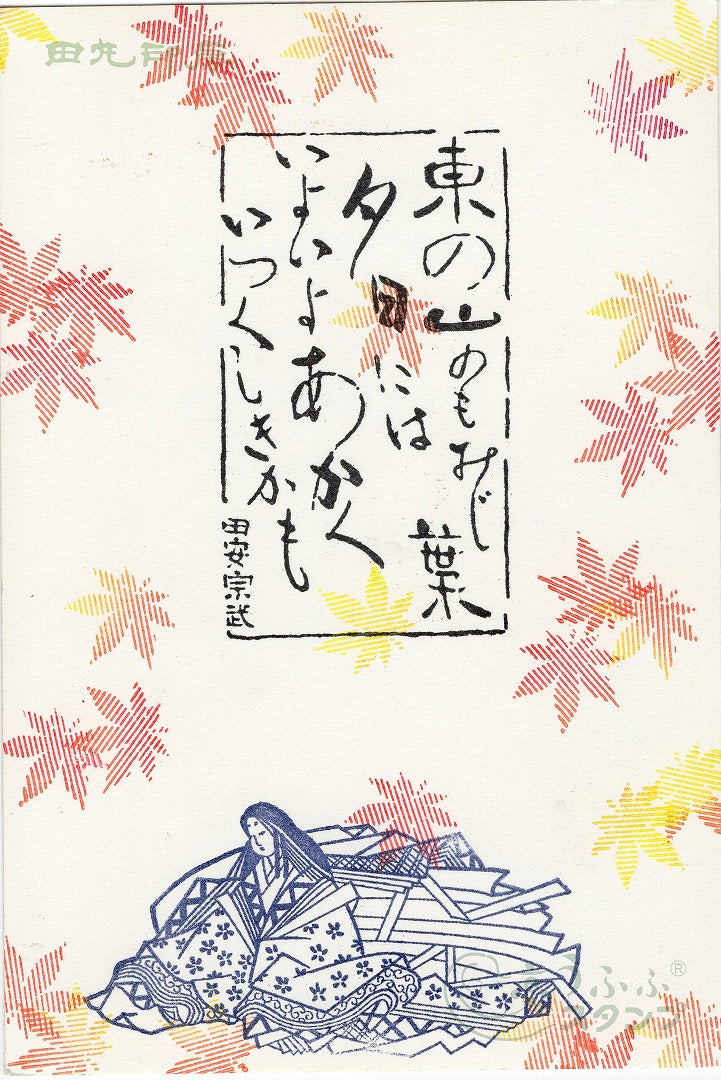 田丸印房
東の山のもみじ葉
夕日には
いよいよあかく
いつくしきかも
田安宗武
スタンプ